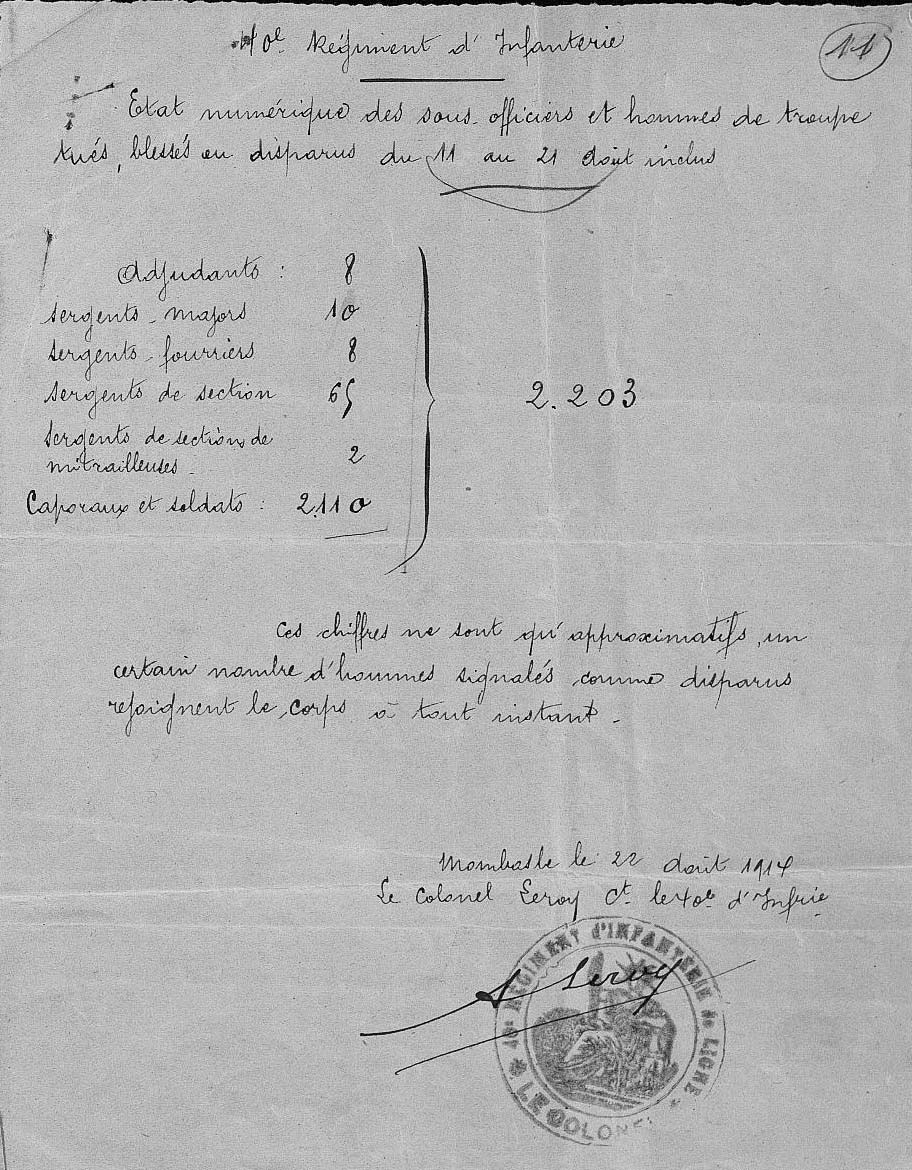 40e Régiment d'Infanterie
11
Etat numérique des sous-officiers et hommes de troupe
tués, blessés ou disparus du 11 au 21 Août inclus
Adjudants : 8
Sergents-majors 10
Sergents-fourriers 8
Sergents de section 65
Sergents de sections de
mitrailleuses - 2
Caporaux et soldats : 2.110
2.203
Ces chiffres ne sont qu'approximatifs, un
certain nombre d'hommes signalés comme disparus
rejoignent le corps à tout instant -
Le 22 Août 1914
Le Colonel Leroy Ct le 40e d'Infrie
A Leroy
40e REGIMENT D'INFANTERIE de LIGNE
* LE COLONEL *